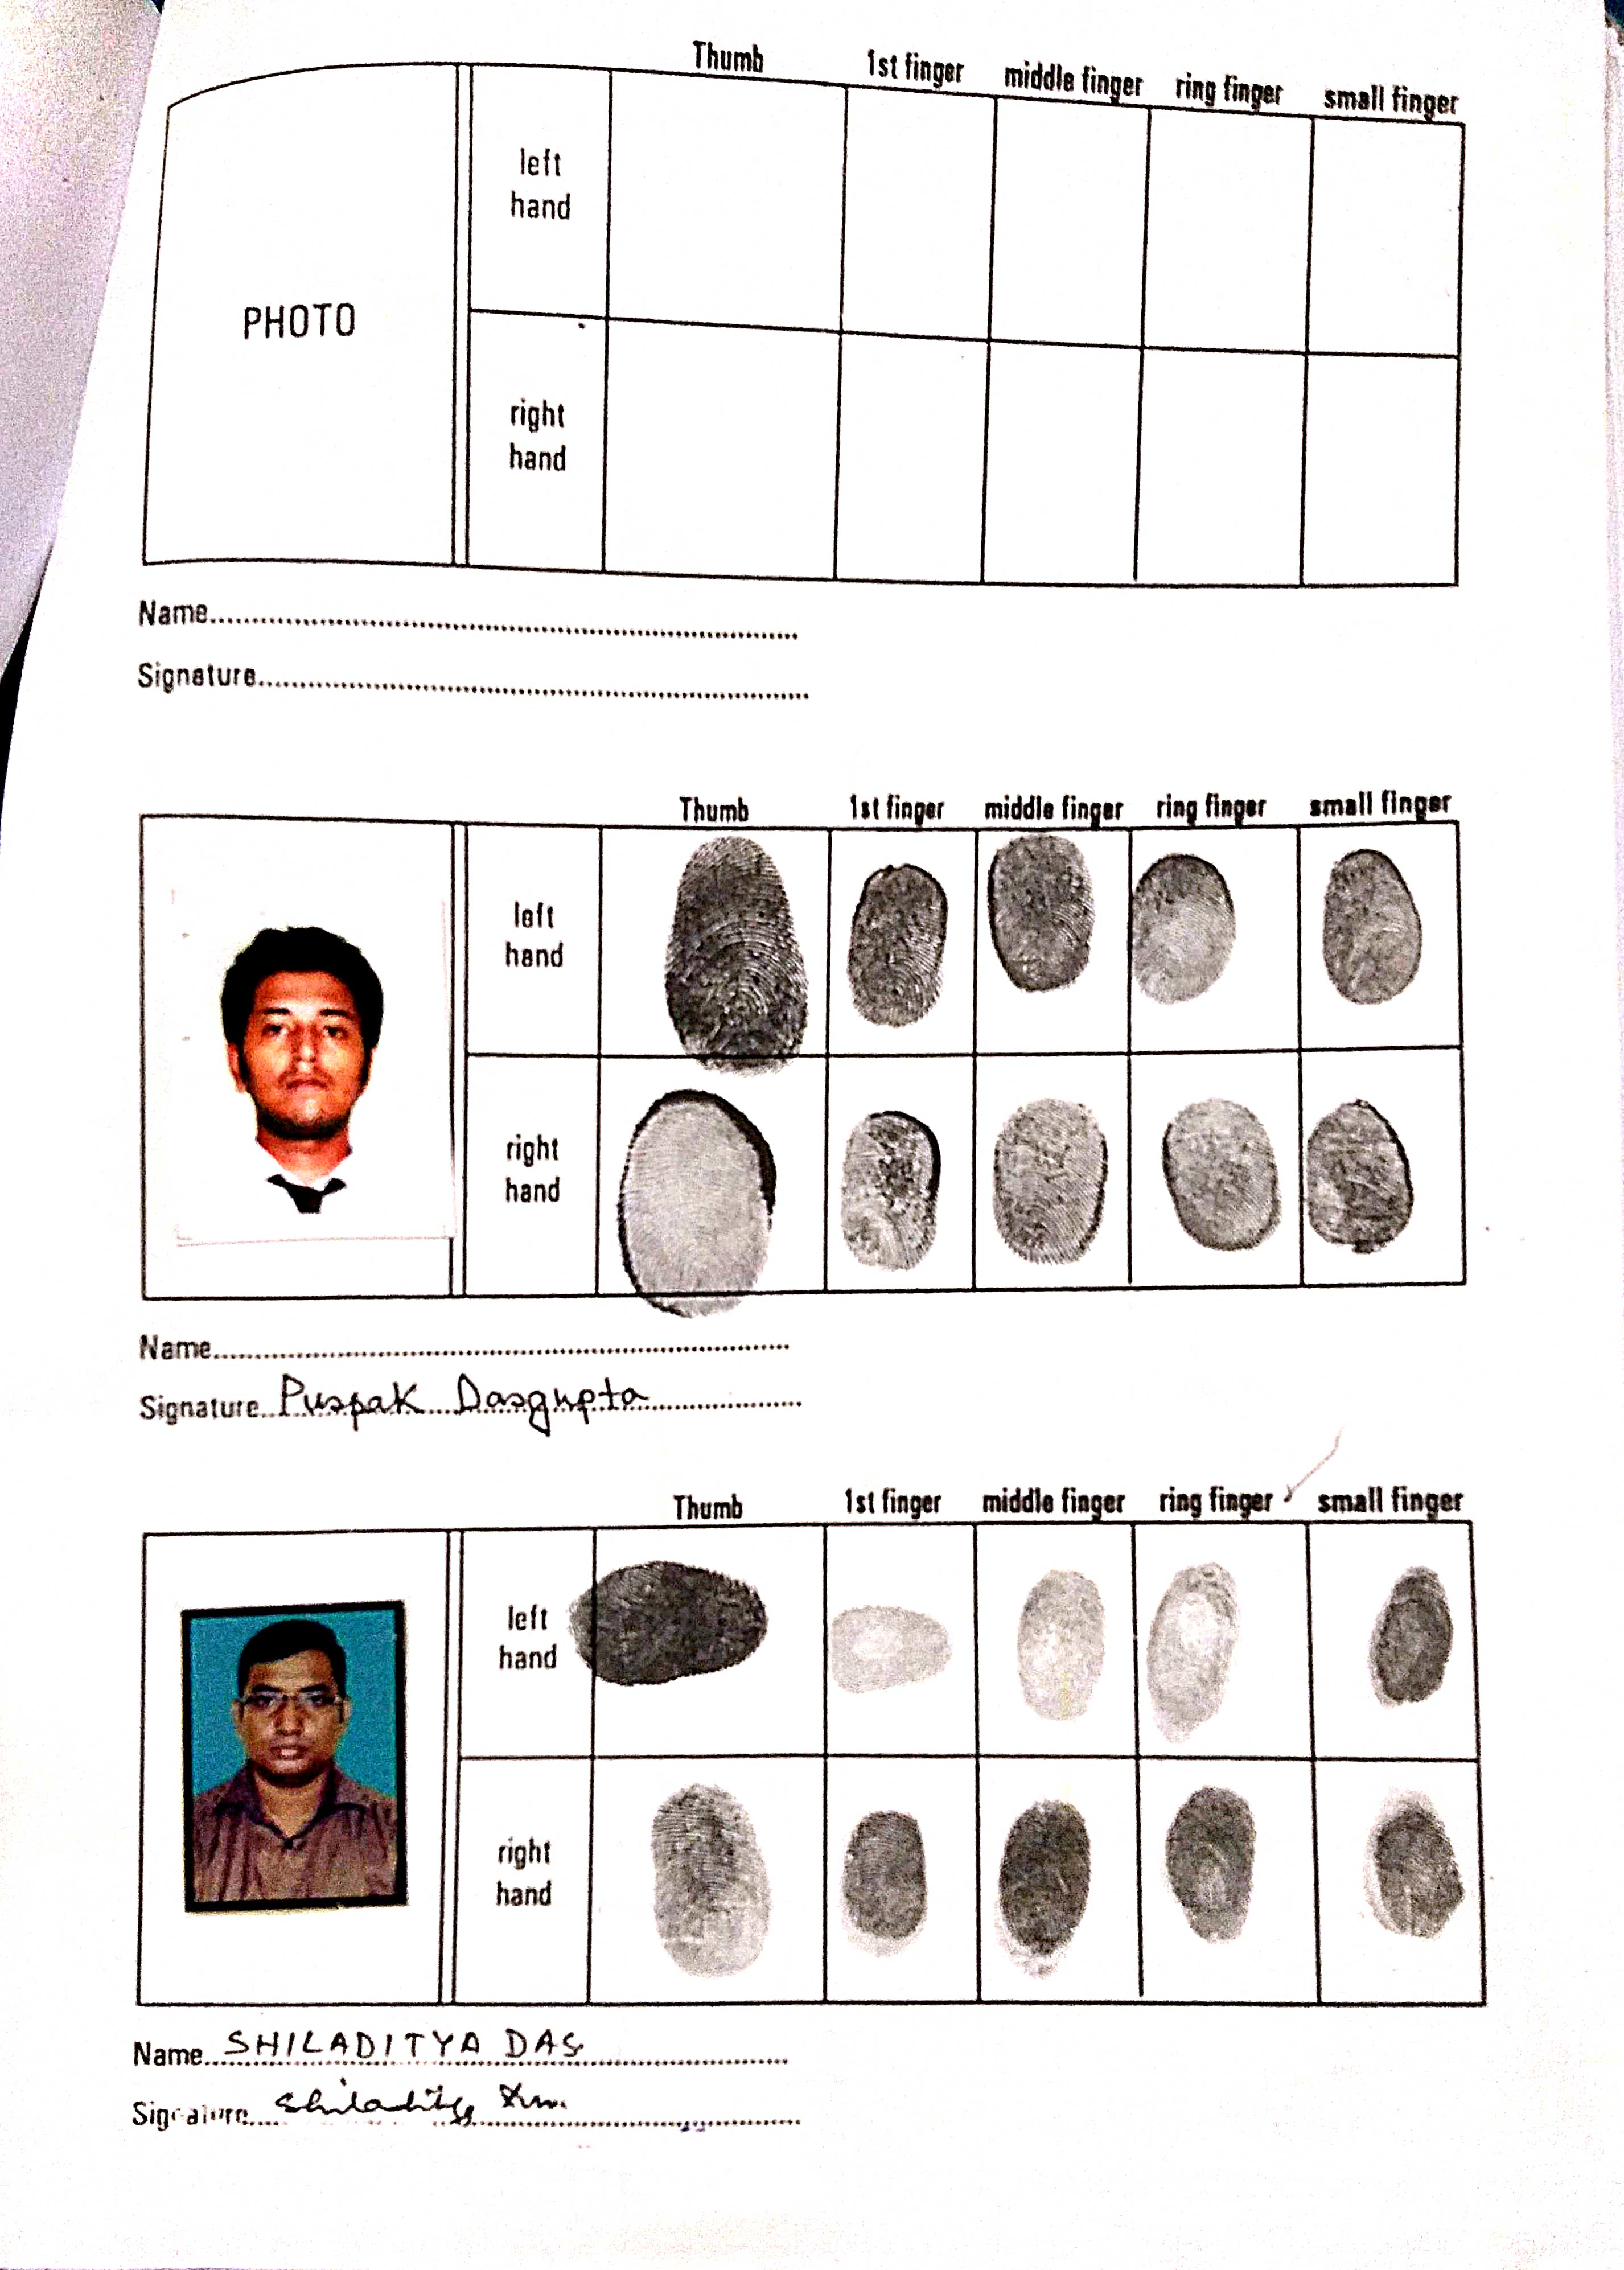 Thumb 1st finger middle finger ring finger small finger
left hand
PHOTO
right hand
Name
Signature
Thumb 1st finger middle finger ring finger small finger
left hand
right hand
Name
Signature Puspak Dasgupta
Thumb 1st finger middle finger ring finger small finger
left hand
right hand
Name SHILADITYA DAS
Signature Shiladitya